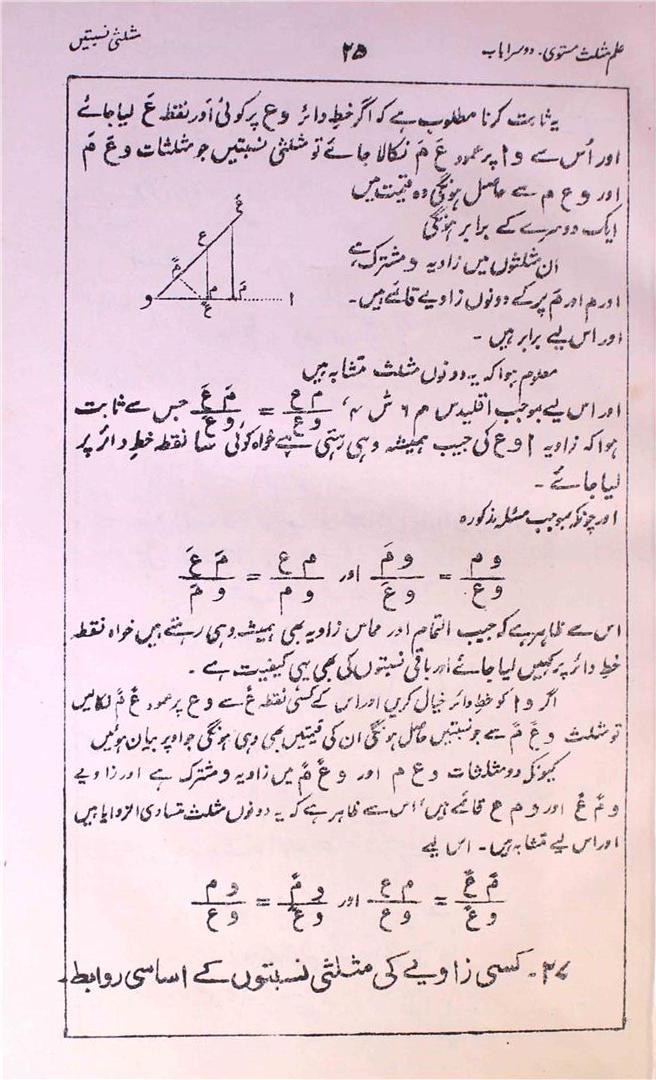 علم مثلث مستوی۔ دوسرا باب ۲۵ مثلثی نسبتیں
یہ ثابت کرنا مطلوب ہے کہ اگر خطِ دائر و ع پر کوئی اَور نقطہ عَ لیا جائے
اور اُس سے و ا پر عمود عَ مَ نکالا جائے تو مثلثی نسبتیں جو مثلثات و عَ مَ
اور و ع م سے حاصل ہونگی وہ قیمت میں
ایک دوسرے کے برابر ہونگی
ان مثلثوں میں زاویہ و مشترک ہے
اور م اور مَ پر کے دونوں زاویے قائمے ہیں۔
اور اس لیے برابر ہیں۔
عَ
ع
مً
و م مَ ا
عً
معلوم ہوا کہ یہ دونوں مثلث متشابہ ہیں
اور اس لیے بموجب اقلیدس م ۶ ش ۴، م ع / و ع = مَ عَ / و عَ جس سے ثابت
ہوا کہ زاویہ ا و ع کی جیب ہمیشہ وہی رہتی ہے خواہ کوئی سا نقطہ خطِ دائر پر
لیا جائے۔
اور چونکہ بموجب مسئلہ مذکورہ
و م / و ع = و مَ / و عَ اور م ع / و م = مَ عَ / و مَ
اس سے ظاہر ہے کہ جیب التمام اور مماس زاویہ بھی ہمیشہ وہی رہتے ہیں خواہ نقطہ
خطِ دائر پر کہیں لیا جائے اور باقی نسبتوں کی بھی یہی کیفیت ہے۔
اگر و ا کو خطِ دائر خیال کریں اور اس کے کسی نقطہ عً سے و ع پر عمود عً مً نکالیں
تو مثلث و عً مً سے جو نسبتیں حاصل ہونگی ان کی قیمتیں بھی وہی ہونگی جو اوپر بیان ہوئیں
کیونکہ دو مثلثات و ع م اور و عً مً میں زاویہ و مشترک ہے اور زاویے
و مً عً اور و م ع قائمے ہیں، اس سے ظاہر ہے کہ یہ دونوں مثلث متساوی الزوایا ہیں
اور اس لیے متشابہ ہیں۔ اس لیے
مً عً / و عً = م ع / و ع اور و مً / و عً = و م / و ع
۲۷۔ کسی زاویے کی مثلثی نسبتوں کے اساسی روابط۔